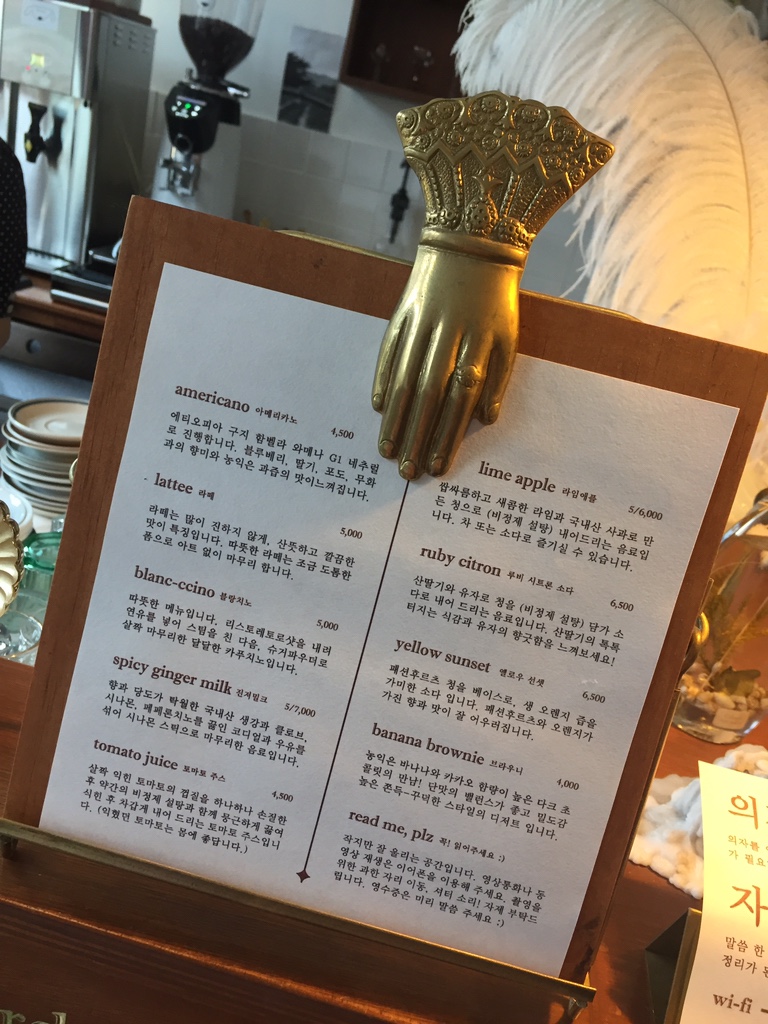 americano 아메리카노
4,500
에티오피아 구지 함벨라 와메나 G1 네추럴
로 진행합니다. 블루베리, 딸기, 포도, 무화
과의 향미와 농익은 과즙의 맛이느껴집니다.
- lattee 라떼
5,000
라떼는 많이 진하지 않게, 산뜻하고 깔끔한
맛이 특징입니다. 따뜻한 라떼는 조금 도톰한
폼으로 아트 없이 마무리 합니다.
blanc-ccino 블랑치노
5,000
따뜻한 메뉴입니다. 리스토레토로샷을 내려
연유를 넣어 스팀을 친 다음, 슈거파우더로
살짝 마무리한 달달한 카푸치노입니다.
spicy ginger milk 진저밀크
5/7,000
향과 당도가 탁월한 국내산 생강과 클로브,
시나몬, 페페론치노를 끓인 코디얼과 우유를
섞어 시나몬 스틱으로 마무리한 음료입니다.
tomato juice 토마토 주스
4,500
살짝 익힌 토마토의 껍질을 하나하나 손질한
후 약간의 비정제 설탕과 함께 뭉근하게 끓여
식힌 후 차갑게 내어 드리는 토마토 주스입니
다. (익혔던 토마토는 몸에 좋답니다.)
lime apple 라임애플
5/6,000
쌉싸름하고 새콤한 라임과 국내산 사과로 만
든 청으로 (비정제 설탕) 내어드리는 음료입
니다. 차 또는 소다로 즐기실 수 있습니다.
ruby citron 루비 시트론 소다
6,500
산딸기와 유자로 청을 (비정제 설탕) 담가 소
다로 내어 드리는 음료입니다. 산딸기의 톡톡
터지는 식감과 유자의 향긋함을 느껴보세요!
yellow sunset 옐로우 선셋
6,500
패션후르츠 청을 베이스로, 생 오렌지 즙을
가미한 소다 입니다. 패션후르츠와 오렌지가
가진 향과 맛이 잘 어우러집니다.
banana brownie 브라우니
4,000
농익은 바나나와 카카오 함량이 높은 다크 초
콜릿의 만남! 단맛의 밸런스가 좋고 밀도감
높은 쫀득-꾸덕한 스타일의 디저트 입니다.
read me, plz 꼭! 읽어주세요 ;)
작지만 잘 울리는 공간입니다. 영상통화나 동
영상 재생은 이어폰을 이용해 주세요. 촬영을
위한 과한 자리 이동, 셔터 소리! 자제 부탁드
립니다. 영수증은 미리 말씀 주세요 ;)
의
의자를
가 필요
자
말씀 한
정리가
wi-fi -